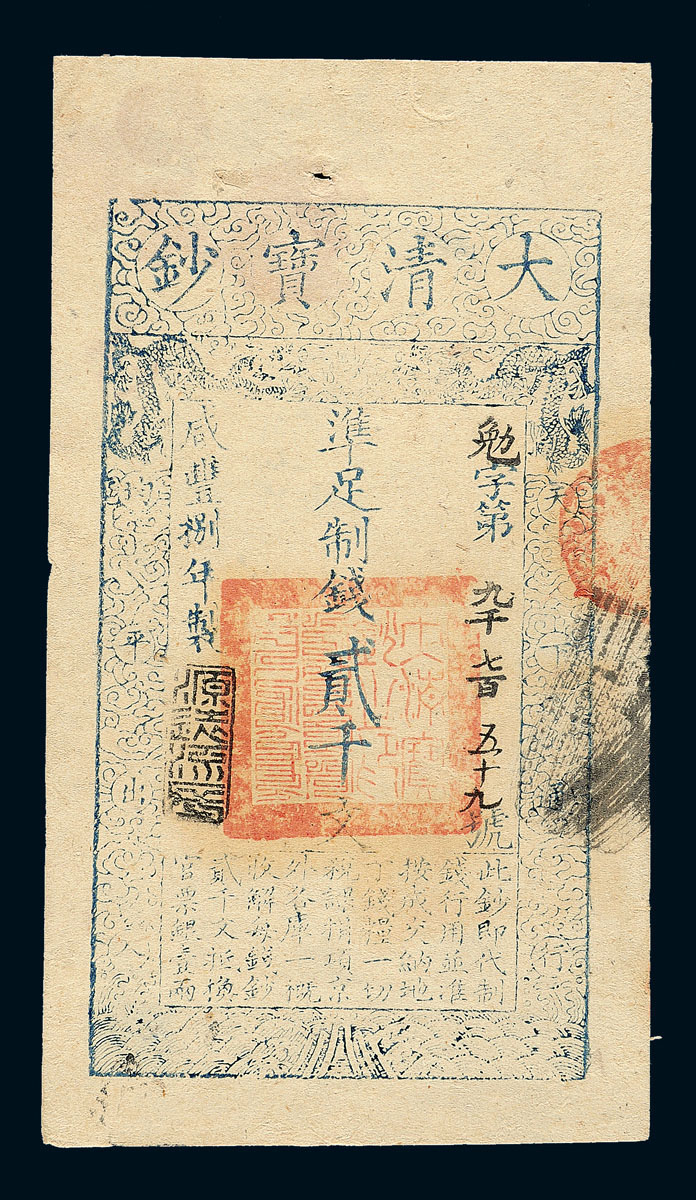 大清寶鈔
天下通行
勉字第九千七百五十九號
準足制錢貳千文
咸豐捌年製
均平出入
此鈔即代制
錢行用並準
按成交納地
丁錢糧一切
稅課捐項京
外各庫一概
收解每錢鈔
貳千文抵換
官票銀壹兩